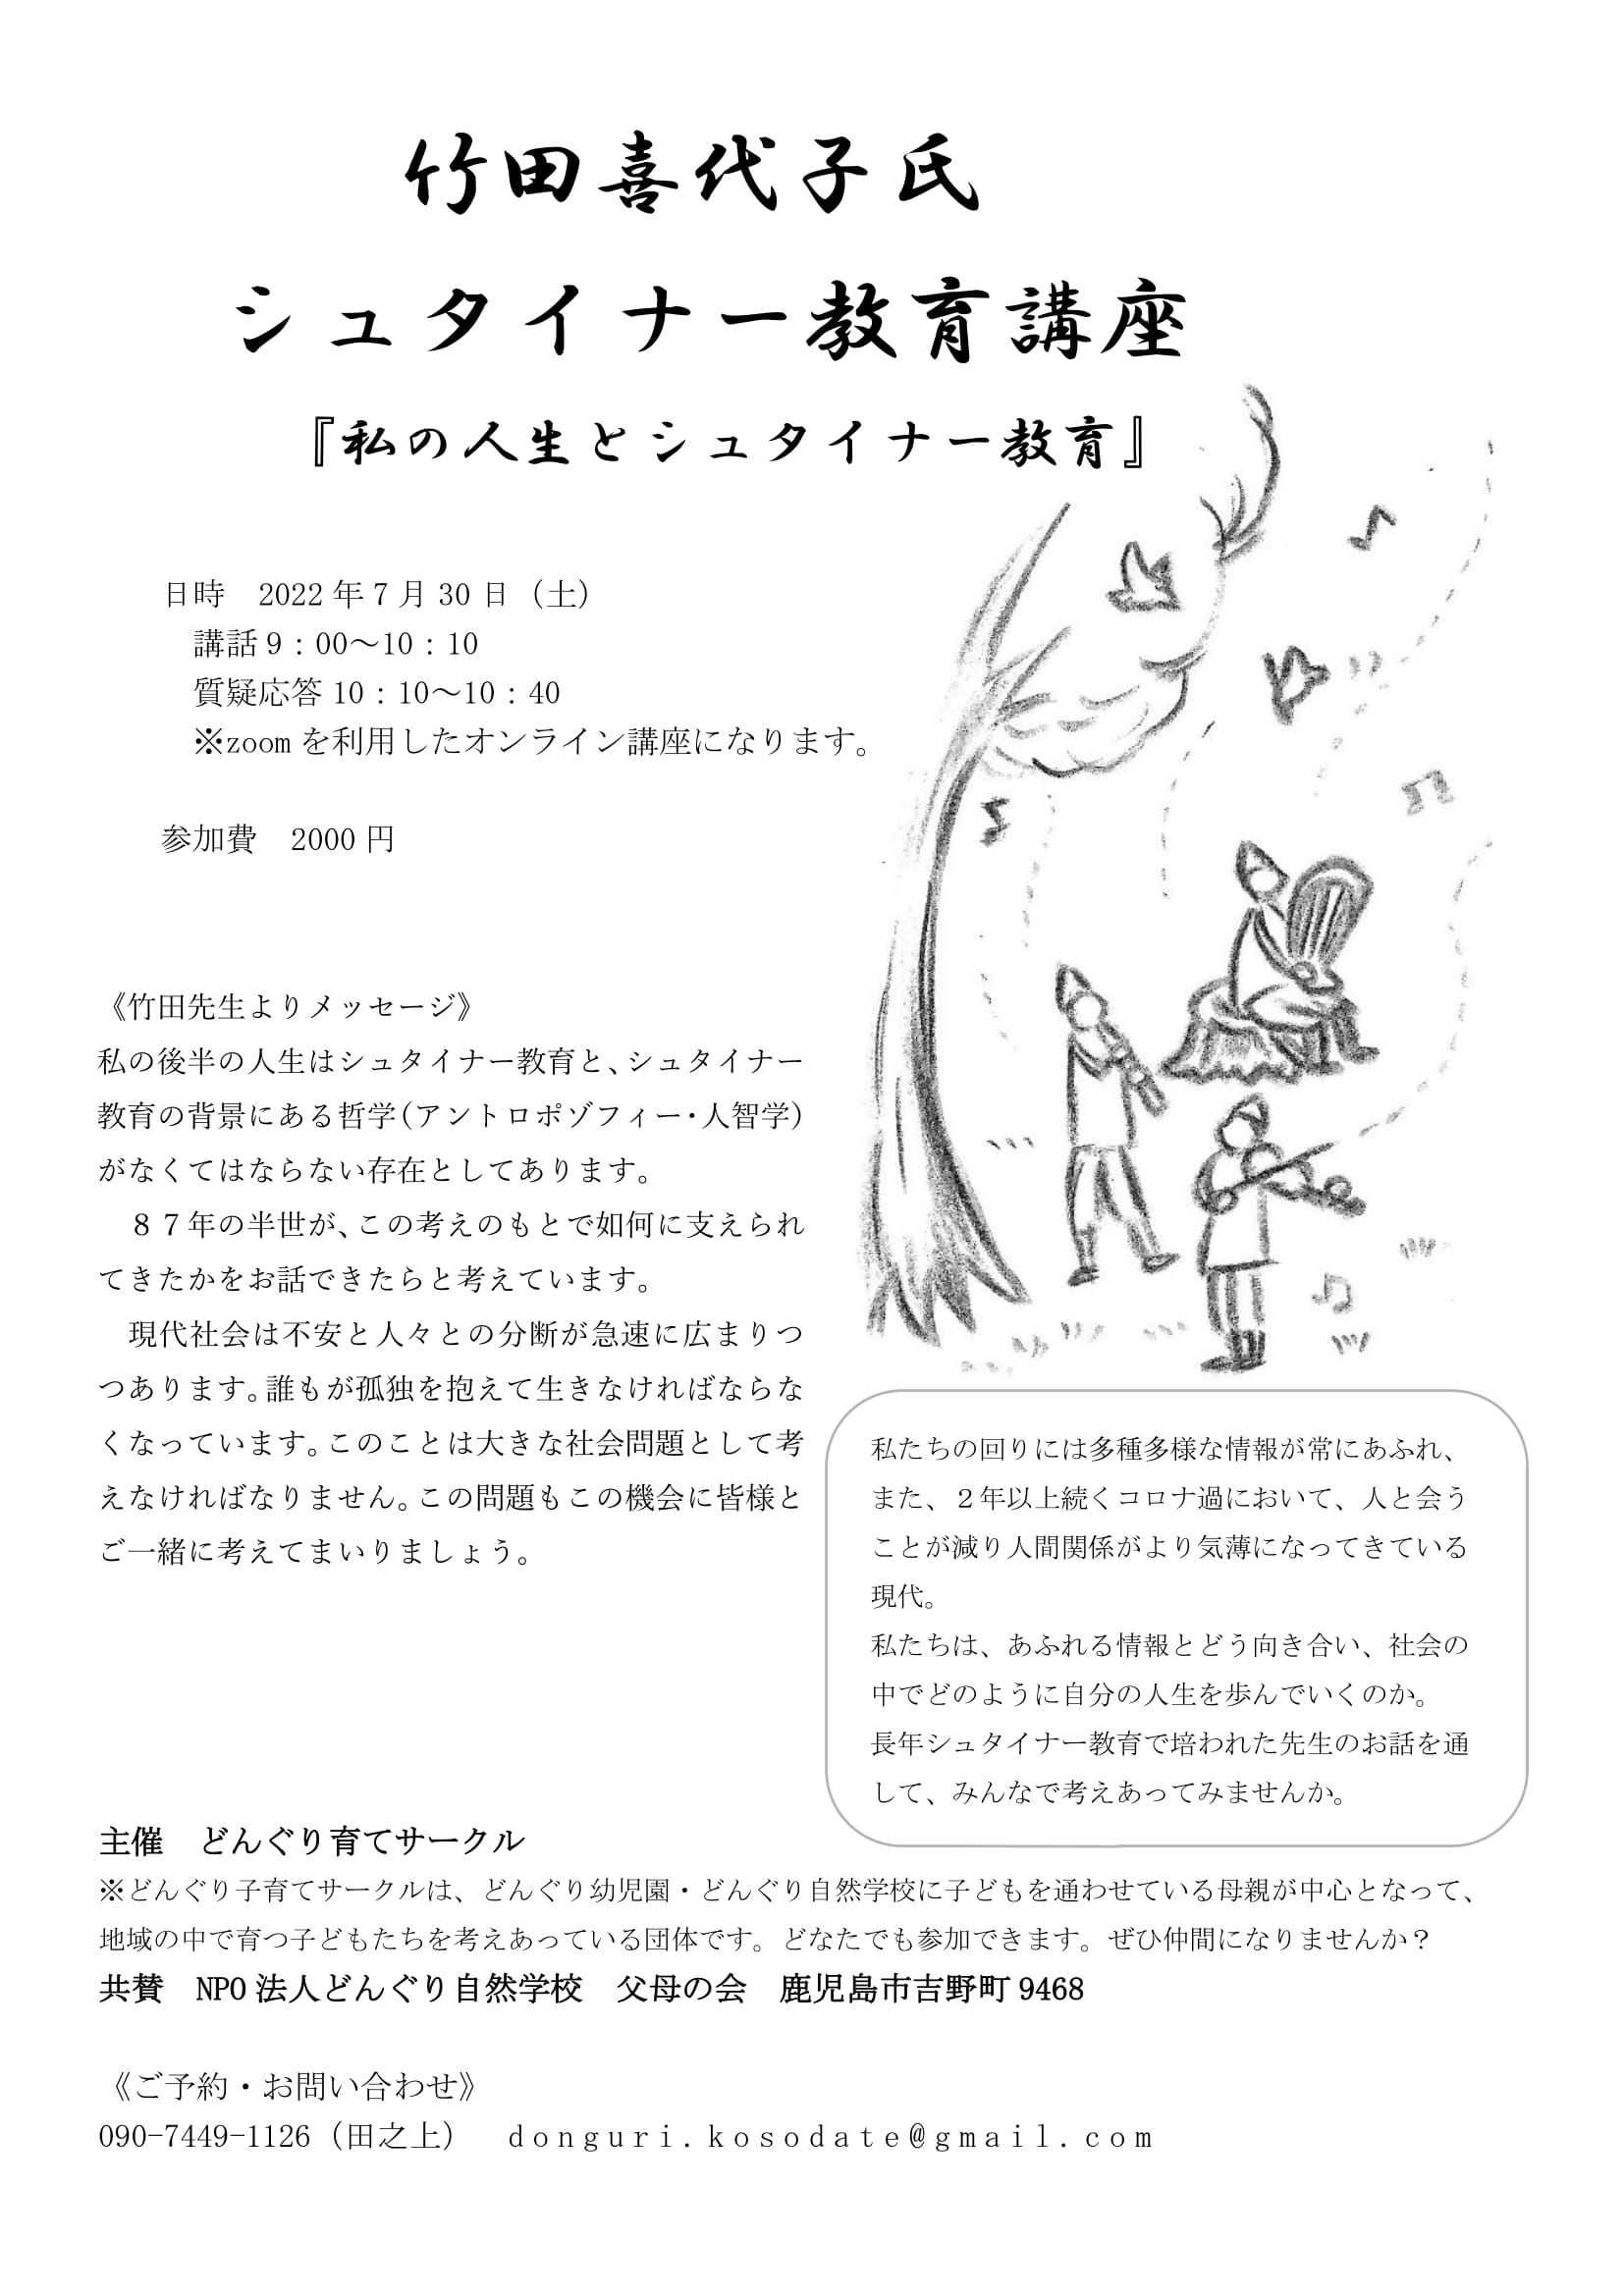 竹田喜代子氏
シュタイナー教育講座
『私の人生とシュタイナー教育』
日時　2022年7月30日（土）
講話9：00～10：10
質疑応答10：10～10：40
※zoomを利用したオンライン講座になります。
参加費　2000円
《竹田先生よりメッセージ》
私の後半の人生はシュタイナー教育と、シュタイナー
教育の背景にある哲学（アントロポゾフィー・人智学）
がなくてはならない存在としてあります。
　８７年の半世が、この考えのもとで如何に支えられ
てきたかをお話できたらと考えています。
　現代社会は不安と人々との分断が急速に広まりつ
つあります。誰もが孤独を抱えて生きなければならな
くなっています。このことは大きな社会問題として考
えなければなりません。この問題もこの機会に皆様と
ご一緒に考えてまいりましょう。
私たちの回りには多種多様な情報が常にあふれ、
また、２年以上続くコロナ過において、人と会う
ことが減り人間関係がより気薄になってきている
現代。
私たちは、あふれる情報とどう向き合い、社会の
中でどのように自分の人生を歩んでいくのか。
長年シュタイナー教育で培われた先生のお話を通
して、みんなで考えあってみませんか。
主催　どんぐり育てサークル
※どんぐり子育てサークルは、どんぐり幼児園・どんぐり自然学校に子どもを通わせている母親が中心となって、
地域の中で育つ子どもたちを考えあっている団体です。どなたでも参加できます。ぜひ仲間になりませんか？
共賛　NPO法人どんぐり自然学校　父母の会　鹿児島市吉野町9468
《ご予約・お問い合わせ》
090-7449-1126（田之上）　donguri.kosodate@gmail.com